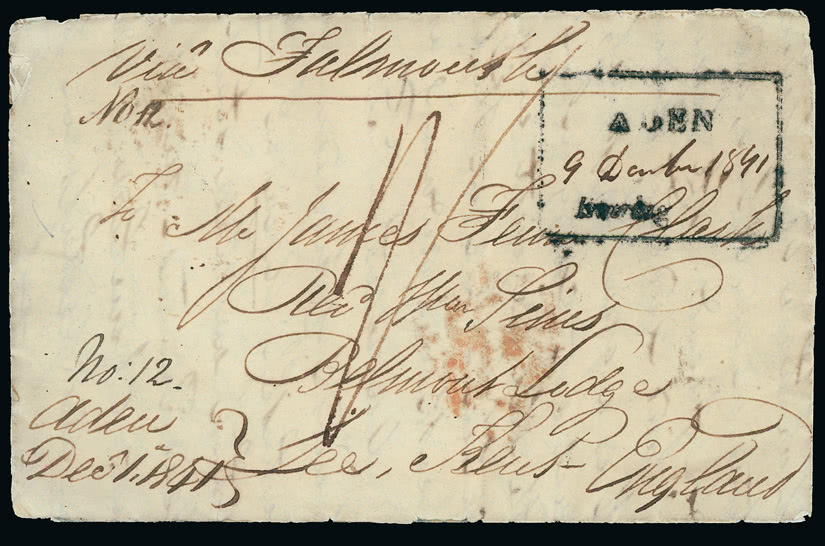 Via Falmouth
No 12
ADEN
9 Decmbr 1841
Bearing
To Mr James Fenn Clark
Revd Wm Sims
Belmont Lodge
Lee, Kent England
No: 12.
Aden
Decr 1st 1841